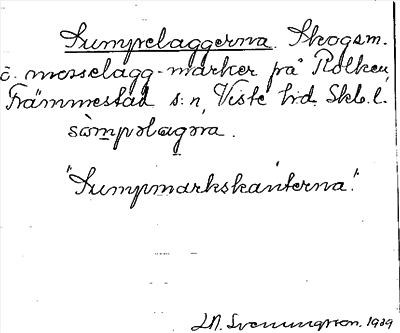 Sumpelaggerna. Skogsm.
o. mosselagg-marker på Rölken,
Främmestad s:n, Viste hd. Skb. l.
sàmpəlagəra.
"Sumpmarkskanterna."
J.N. Svenningsson. 1939